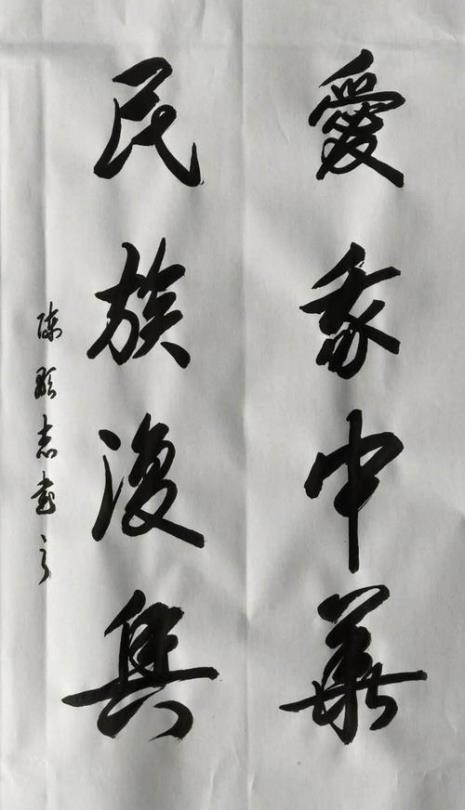 愛我中華
民族復興
陳
志書